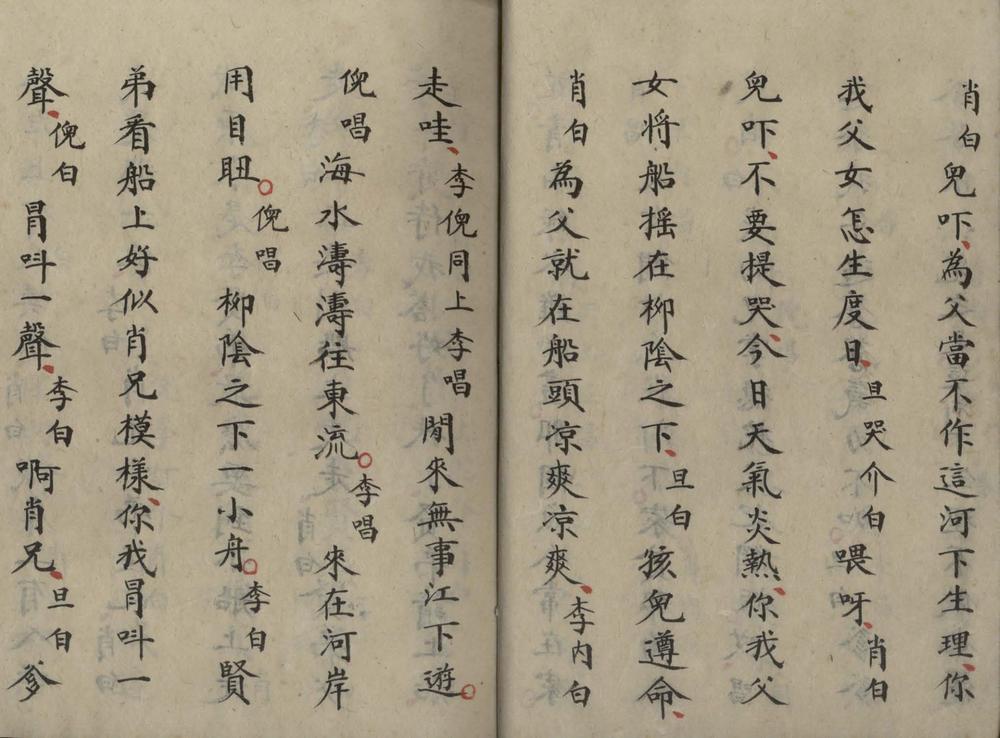 肖白兒吓、為父當不作這河下生理、你
我父女怎生度日、旦哭介白喂呀、肖白
兒吓、不要提哭、今日天氣炎熱、你我父
女將船搖在柳陰之下、旦白孩兒遵命、
肖白為父就在船頭凉爽凉爽、李內白
走哇、李倪同上李唱閒來無事江下遊。
倪唱海水濤濤往東流。李唱來在河岸
用目瞅。倪唱柳陰之下一小舟。李白賢
弟看船上好似肖兄模樣、你我冒呌一
聲、倪白冐呌一聲、李白啊肖兄、旦白爹